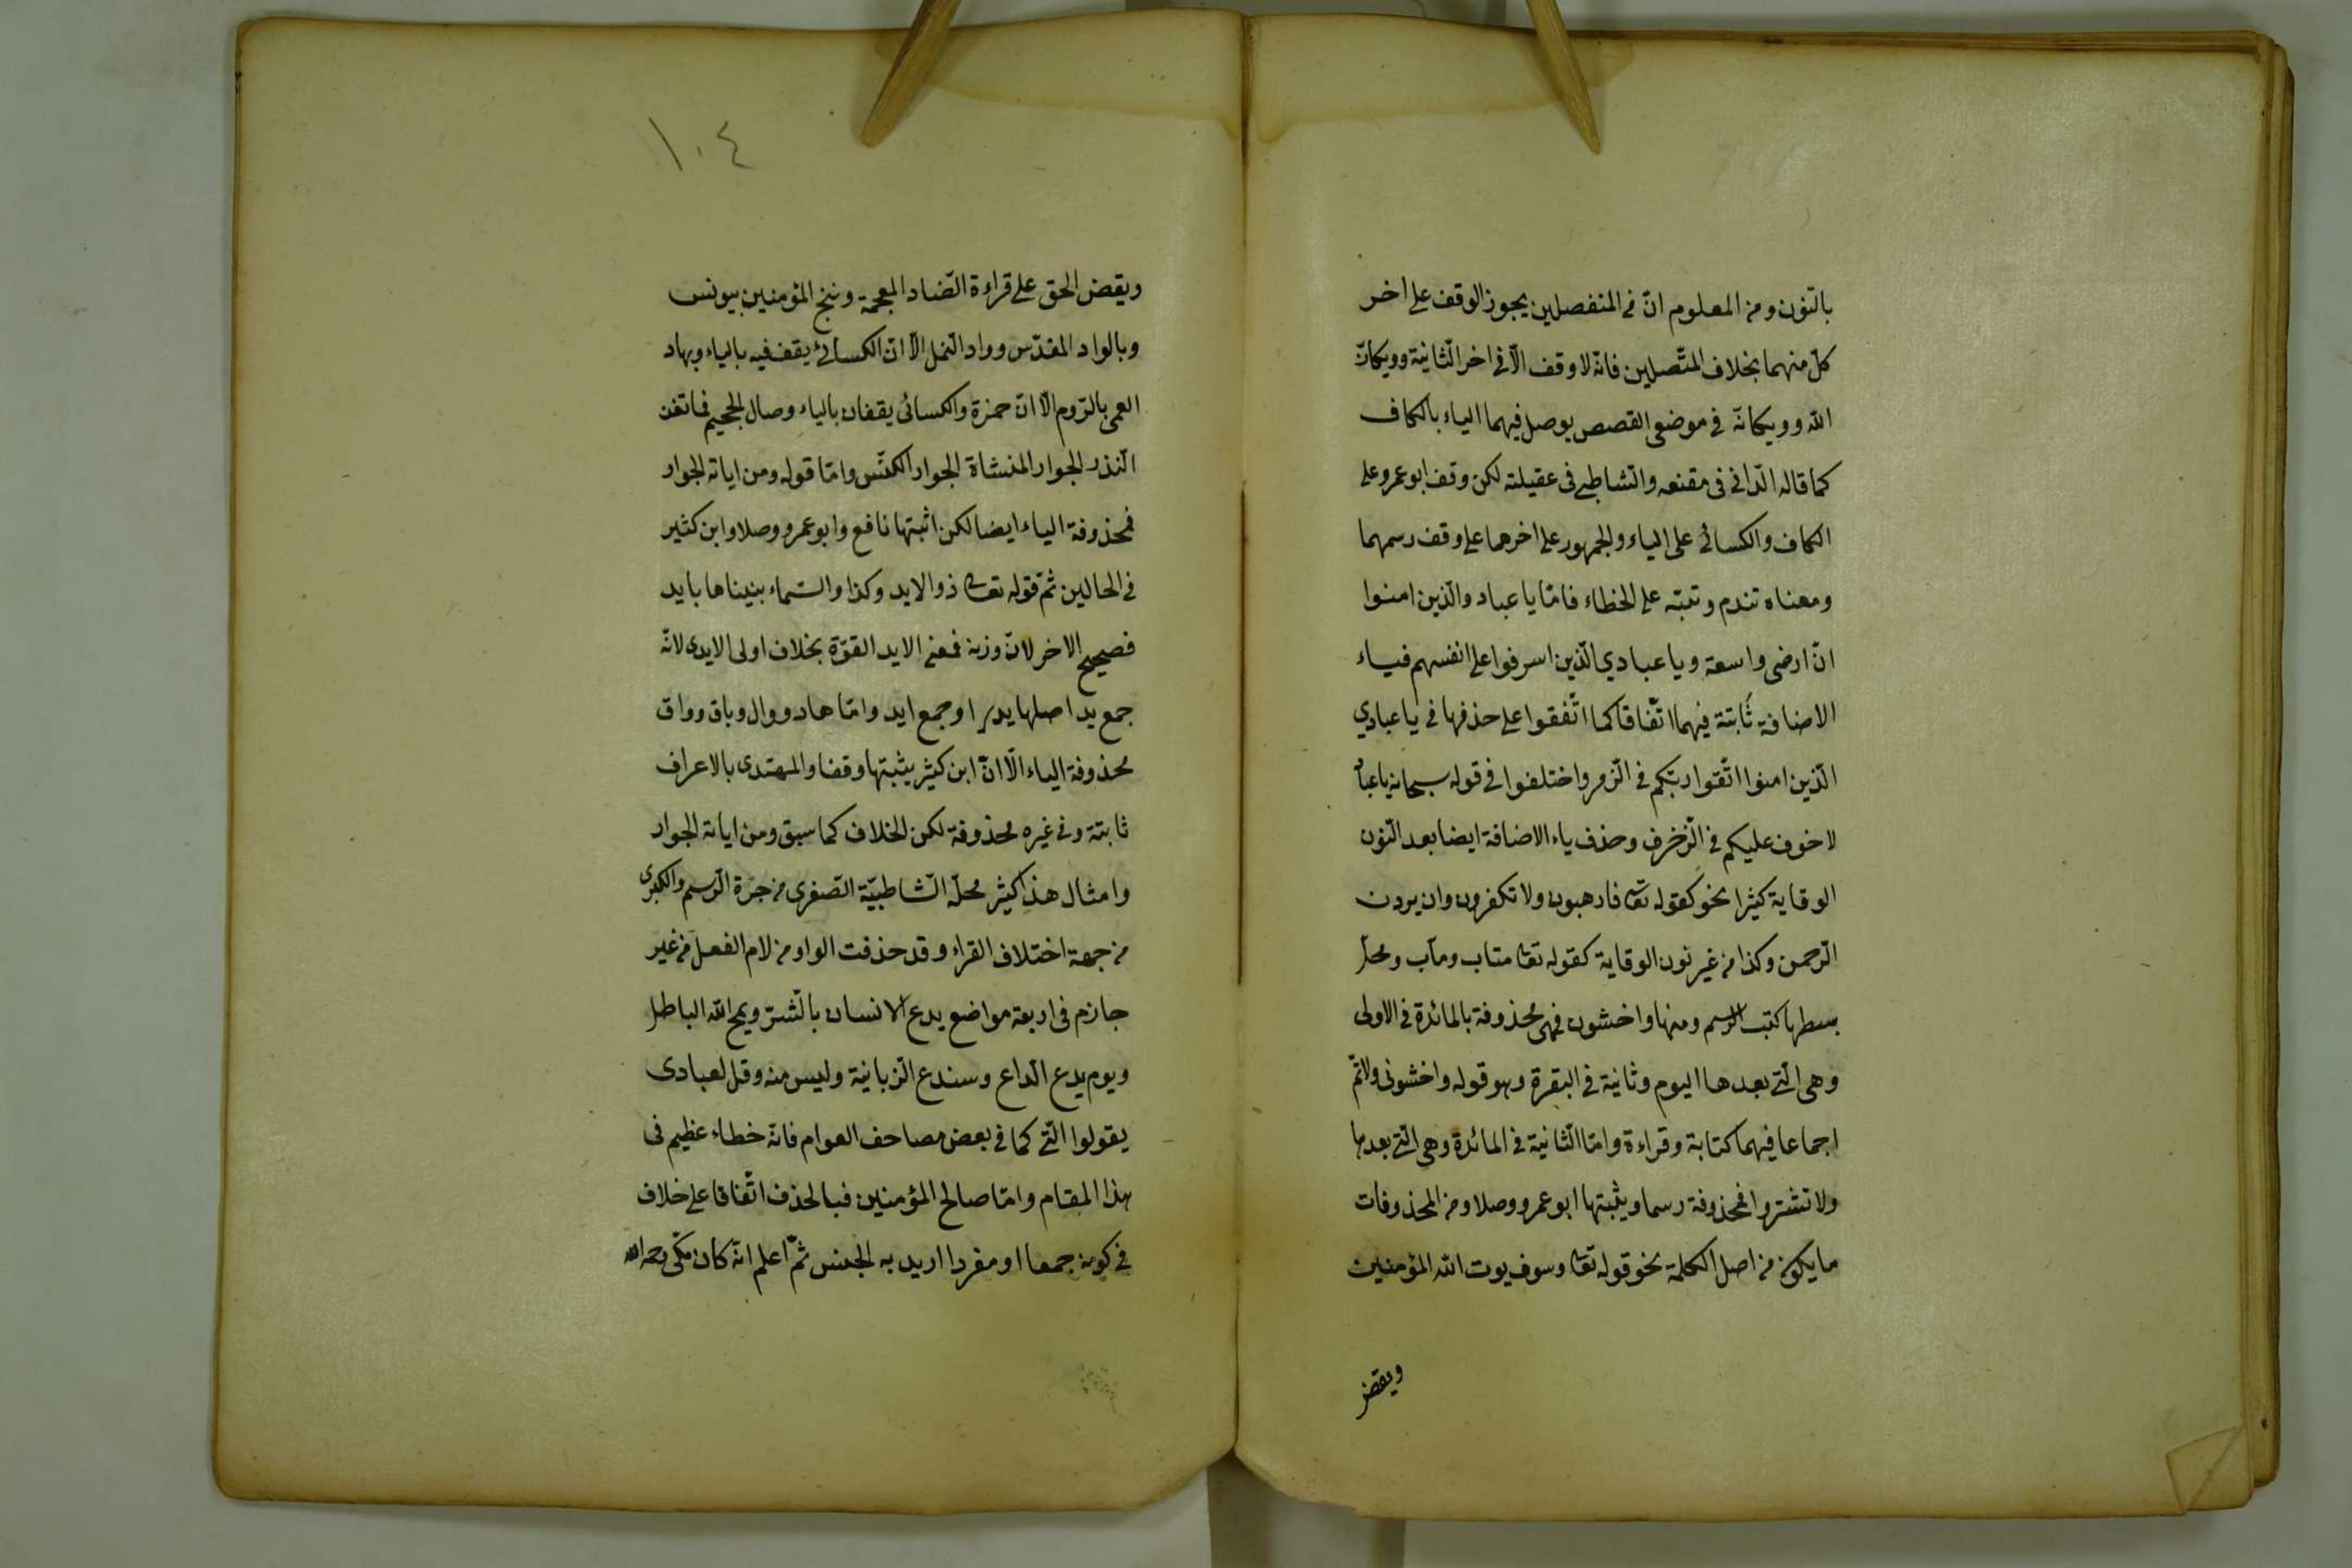 بالنّون ومن المعلوم انّ فى المنفصلين يجوز الوقف على اخر
كلّ منهما بخلاف المتّصلين فانّه لا وقف الّا فى اخر الثّانية وويكانّ
الله وويكانّه فى موضعى القصص يوصل فيهما الياء بالكاف
كما قاله الدّانى فى مقنعه والشّاطبى فى عقيلته لكن وقف ابو عمرو على
الكاف والكسائى على الياء والجمهور على اخرهما على وفق رسمهما
ومعناه تندم وتنبّه على الخطاء فامّا يا عباد والّذين امنوا
انّ ارضى واسعة ويا عبادي الّذين اسرفوا على انفسهم فياء
الاضافة ثابتة فيهما اتّفاقا كما اتّفقوا على حذفها فى يا عبادي
الّذين امنوا اتّقوا ربّكم فى الزّمر واختلفوا فى قوله سبحانه يا عباد
لا خوف عليكم فى الزّخرف وحذف ياء الاضافة ايضا بعد النّون
الوقاية كثيرا نحو كقوله تعا فارهبون ولا تكفرون وان يردن
الرّحمن وكذا من غير نون الوقاية كقوله تعا متاب ومآب ومحلّ
بسطها كتب الرّسم ومنها واخشون فهى محذوفة بالمائدة فى الاولى
وهى الّتى بعدها اليوم وثانية فى البقرة وهو قوله واخشونى ولاتمّ
اجماعا فيهما كتابة وقراءة وامّا الثّانية فى المائدة وهى الّتى بعدها
ولا تشتروا فمحذوفة رسما ويثبتها ابو عمرو وصلا ومن المحذوفات
ما يكون من اصل الكلمة نحو قوله تعا وسوف يوت الله المؤمنين
ويقض
١٠٤
ويقض الحق على قراءة الضّاد المعجمة وننج المؤمنين بيونس
وبالواد المقدّس وواد النّمل الّا انّ الكسائى يقف فيه بالياء وبهاد
العمى بالرّوم الّا انّ حمزة والكسائى يقفان بالياء وصال الجحيم فما تغن
النّذر الجوار المنشاة الجوار الكنّس وامّا قوله ومن اياته الجوار
فمحذوفة الياء ايضا لكن اثبتها نافع وابو عمرو وصلا وابن كثير
فى الحالين ثمّ قوله تعالى ذو الايد وكذا والسّماء بنيناها بايد
فصحيح الاخر لانّ وزنه فمعنى الايد القوّة بخلاف اولى الايدى لانّه
جمع يد اصلها يدي او جمع ايد وامّا هاد ووال وباق وواق
محذوفة الياء الّا انّ ابن كثير يثبتها وقفا والمهتدى بالاعراف
ثابتة وفى غيره محذوفة لكن الخلاف كما سبق ومن اياته الجوار
وامثال هذا كثير محلّه الشّاطبيّة الصّغرى من جهة الرّسم والكبرى
من جهة اختلاف القراء وقد حذفت الواو من لام الفعل من غير
جازم فى اربعة مواضع يدع الانسان بالشّرّ ويمح الله الباطل
ويوم يدع الدّاع وسندع الزّبانية وليس منه وقل لعبادى
يقولوا الّتى كما فى بعض مصاحف العوام فانّه خطاء عظيم فى
هذا المقام وامّا صالح المؤمنين فبالحذف اتّفاقا على خلاف
فى كونه جمعا او مفردا اريد به الجنس ثمّ اعلم انّه كان مكّى رحمه الله